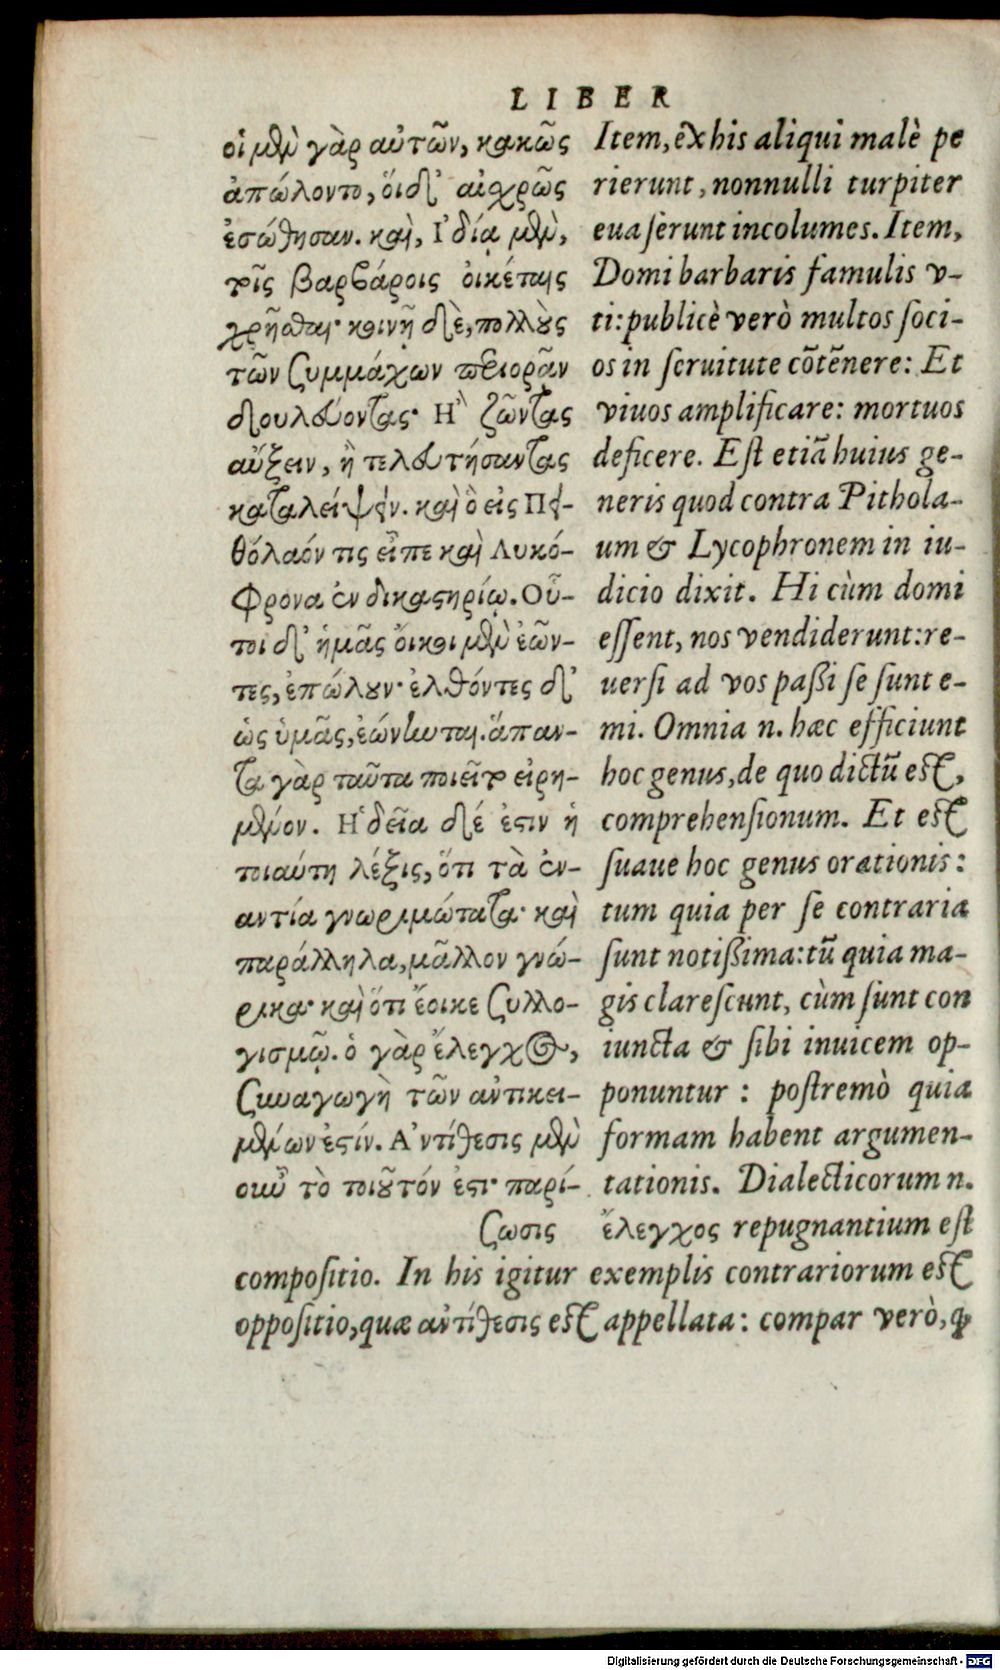 LIBER
οἱ μὲν γὰρ αὐτῶν, κακῶς
ἀπώλοντο, ὅιδ' αἰχρῶς
ἐσώθησαν. καὶ, Ἰδίᾳ μὲν,
τοῖς βαρβάροις οἰκέταις
χρῆσθαι· κοινῇ δὲ, πολλοὺς
τῶν συμμάχων περιορᾶν
δουλεύοντας· Ἢ ζῶντας
αὔξειν, ἢ τελευτήσαντας
καταλείψειν. καὶ ὃ εἰς Πει-
θόλαόν τις εἶπε καὶ Λυκό-
φρονα ἐν δικαστηρίῳ. Οὗ-
τοι δ' ἡμᾶς ὄικοι μὲν ἐών-
τες, ἐπώλουν· ἐλθόντες δ'
ὡς ὑμᾶς, ἐώνηνται. ἅπαν-
τα γὰρ ταῦτα ποιεῖ τὸ εἰρη-
μένον. Ἡδεῖα δέ ἐστιν ἡ
τοιαύτη λέξις, ὅτι τὰ ἐν-
αντία γνωριμώτατα· καὶ
παράλληλα, μᾶλλον γνώ-
ριμα· καὶ ὅτι ἔοικε συλλο-
γισμῷ. ὁ γὰρ ἔλεγχος,
συναγωγὴ τῶν ἀντικει-
μένων ἐστίν. Ἀντίθεσις μὲν
οὖν τὸ τοιοῦτόν ἐστι· παρί-
σωσις
Item, ẽx his aliqui malè pe
rierunt, nonnulli turpiter
euaserunt incolumes. Item,
Domi barbaris famulis v-
ti: publicè verò multos soci-
os in seruitute cõtẽnere: Et
viuos amplificare: mortuos
deficere. Est etiã huius ge-
neris quod contra Pithola-
um & Lycophronem in iu-
dicio dixit. Hi cùm domi
essent, nos vendiderunt: re-
uersi ad vos passi se sunt e-
mi. Omnia n. hæc efficiunt
hoc genus, de quo dictũ est,
comprehensionum. Et est
suaue hoc genus orationis:
tum quia per se contraria
sunt notissima: tũ quia ma-
gis clarescunt, cùm sunt con
iuncta & sibi inuicem op-
ponuntur: postremò quia
formam habent argumen-
tationis. Dialecticorum n.
ἔλεγχος repugnantium est
compositio. In his igitur exemplis contrariorum est
oppositio, quæ ἀντίθεσις est appellata: compar verò, ꝙ
Digitalisierung gefördert durch die Deutsche Forschungsgemeinschaft - DFG